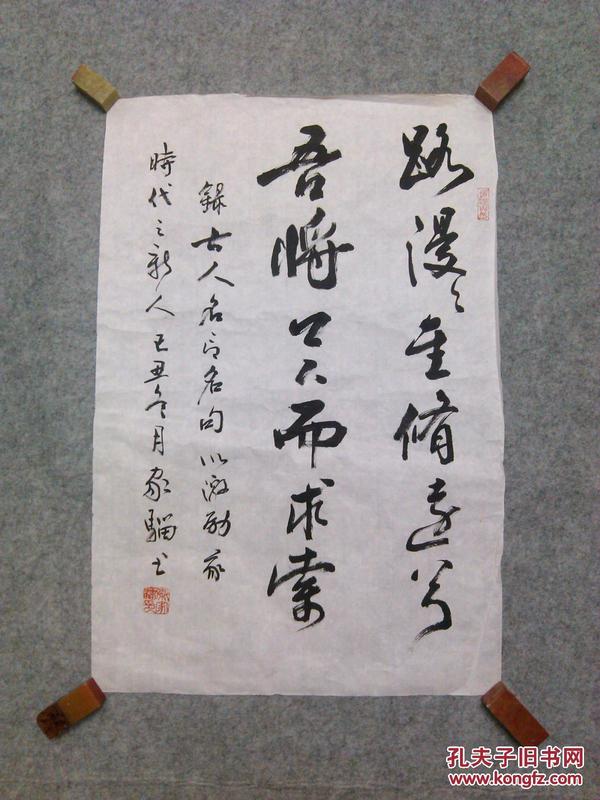 路漫々其脩遠兮
吾將上下而求索
錄古人名言名句以激勵我
時代之新人己丑冬月家騮書
孔夫子旧书网
www.kongfz.com